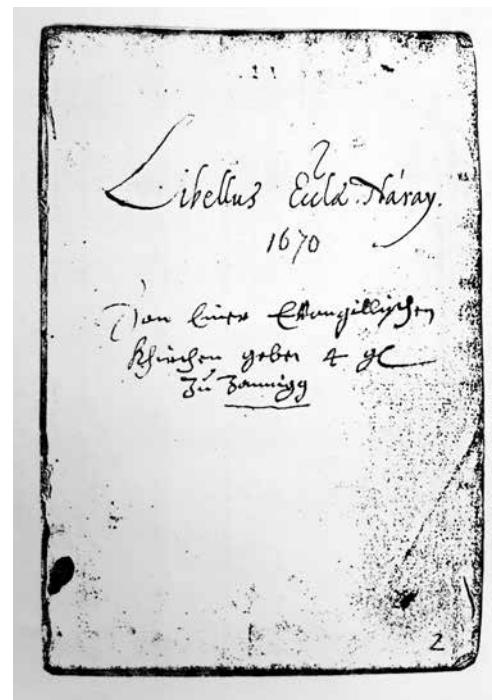 Libellus Eccłæ Náray.
1670
Von Einer Ewangillischen
Khirchen geben 4 gl
Zu
2